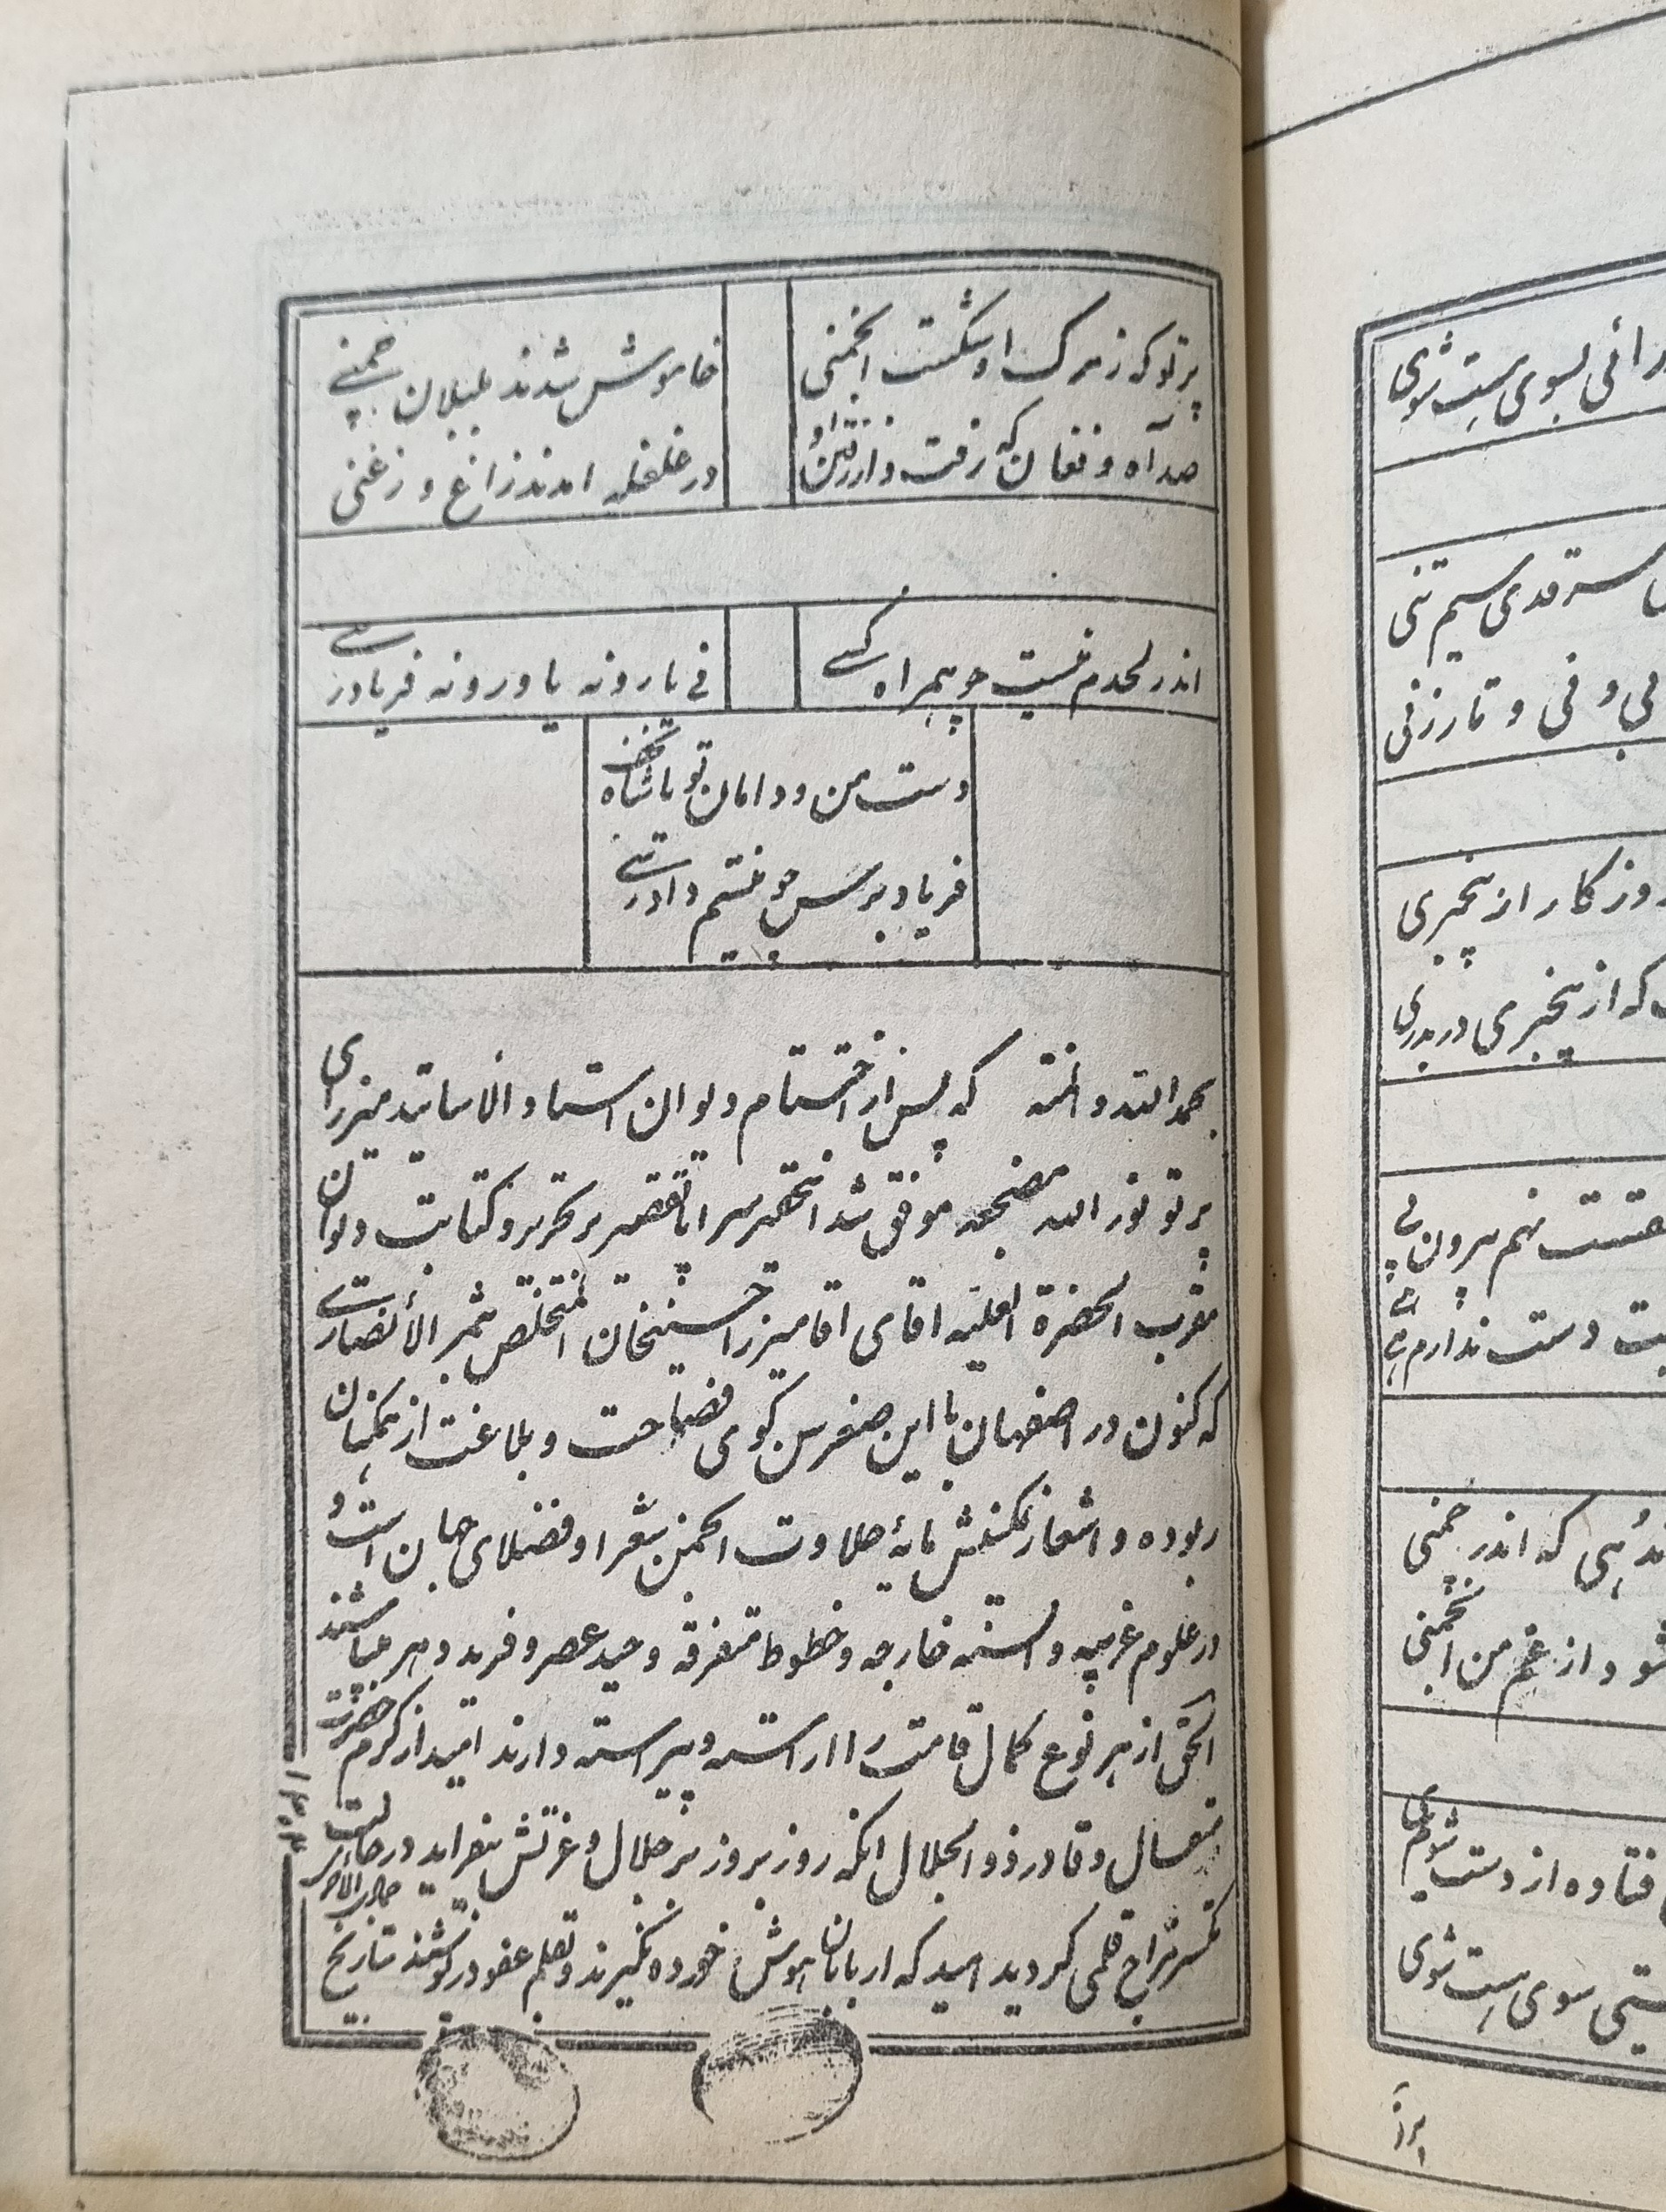 پرتو که ز مرگ او شکست انجمنی
خاموش شدند بلبلان چمنی
صد آه و فغان که رفت و از رفتن او
در غلغله امدند زاغ و زغنی
اندر لحدم نیست چو همراه کسے
نی یار و نه یاور و نه فریادرسے
دست من و دامان تو یا شاه نجف
فریاد برس چو نیستم دادرسے
بحمد الله و المنه که پس از اختتام دیوان استاد الاساتید میرزای
پرتو نور الله مضجعه موفق شد انحقیر سراپا تقصیر بر تحریر و کتابت دیوان
مقرب الحضرة العلیه اقای اقا میرزا حسینخان المتخلص بثمر الأنصاری
که کنون در اصفهان با این صغر سن گوی فصاحت و بلاغت از همگنان
ربوده و اشعار نمکینش مایهٔ حلاوت انجمن شعرا و فضلای جهان است و
در علوم غریبه و السنه خارجه و خطوط متفرقه وحید عصر و فرید دهر میباشند
الحق از هر نوع کمال قامت را اراسته و پیراسته دارند امید از کرم حضرت
متعال و قادر ذو الجلال انکه روز بروز بر جلال و عزتش بیفزاید در حالت
کسر مزاج قلمی گردید امید که اربابان هوش خورده نگیرند و بقلم عفو در گوشند بتاریخ
رائی بسوی پست شوی
قدی سیم تنی
نی و نی و تار زنی
روزگار از بیخبری
که از بیخبری در بدری
نهم بیرون پی
دست ندارم
که اندر چمنی
شود از غم من انجمنی
فتاده از دست
سوی پست شوی